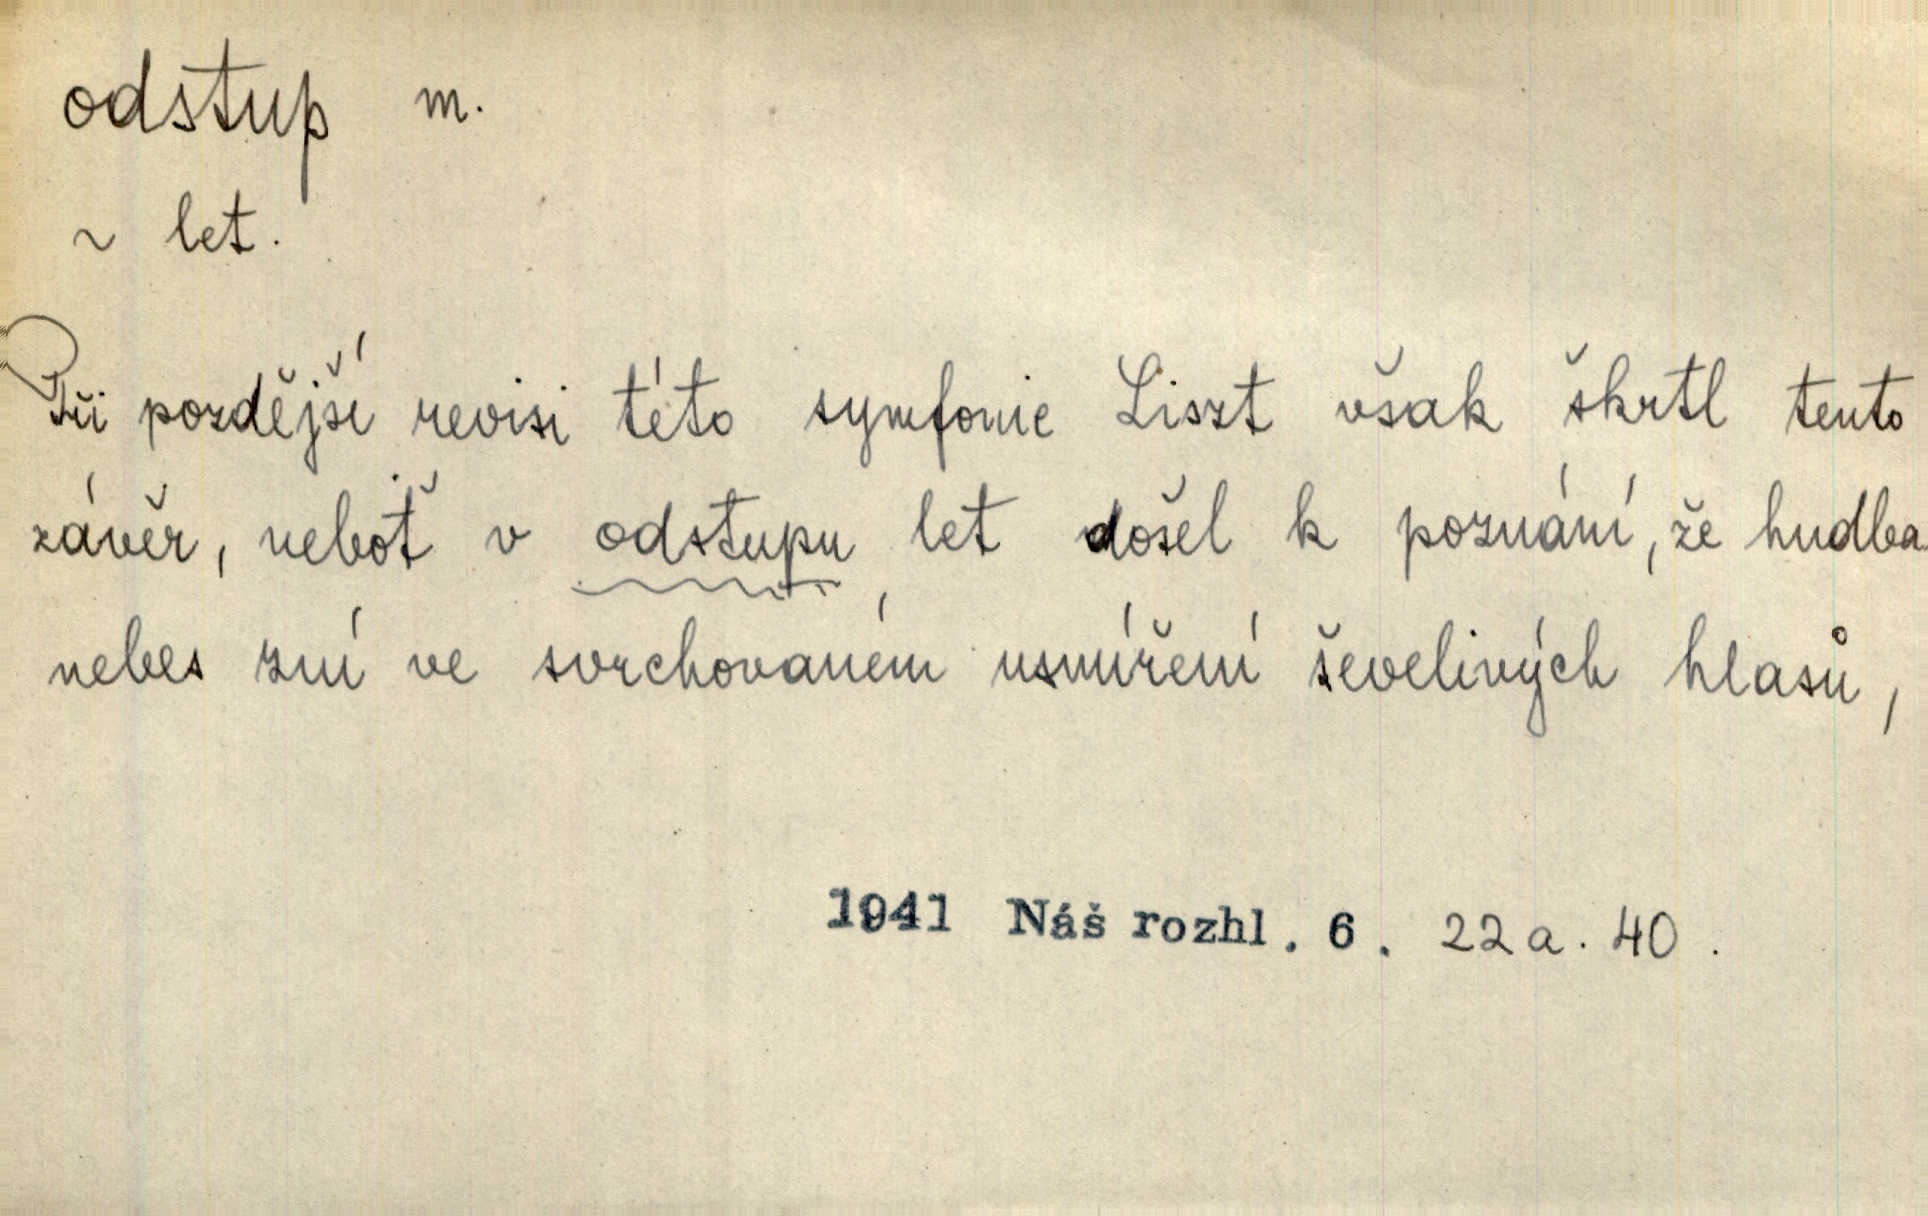 odstup m.
~ let.
Při pozdější revisi této symfonie Liszt však škrtl tento
závěr, neboť v odstupu let došel k poznání, že hudba
nebes zní ve svrchovaném usmíření ševelivých hlasů,
1941 Náš rozhl. 6. 22a. 40.